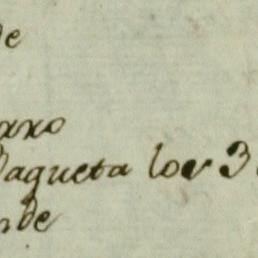 de
axo
Vaqueta los 3
nde